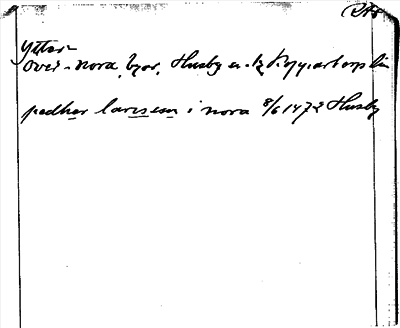 RAp
Ytter-
Över- Nora, byar, Husby sn. o. hd Kopparbergs län
pedhar larisson i nora 8/6 1472 Husby